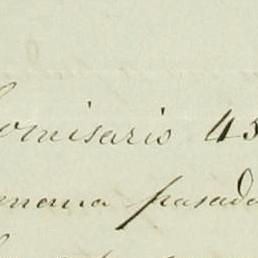 omisario 45
mana pasada